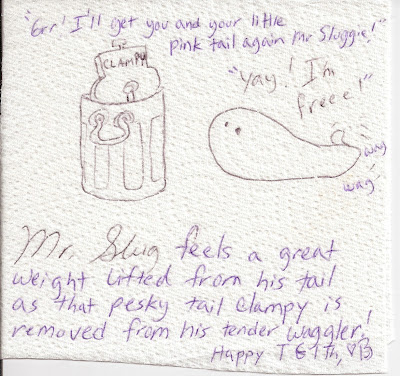 "Grr! I'll get you and your little
pink tail again Mr Sluggie!"
CLAMPY
"Yay! I'm
freee!"
wag
wag
Mr. Slug feels a great
weight lifted from his tail
as that pesky tail clampy is
removed from his tender waggler!
Happy T G I Th, ♡B